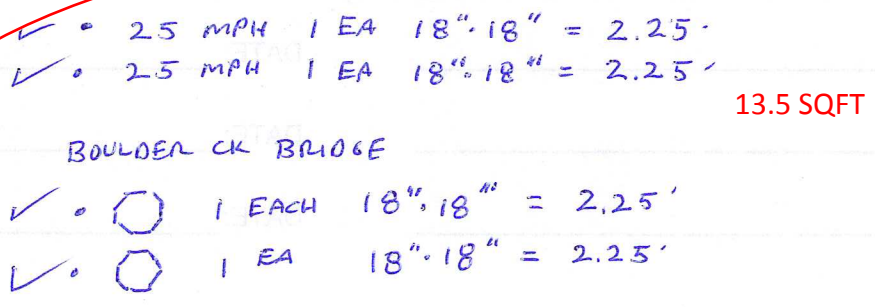 ✓ • 25 MPH 1 EA 18"·18" = 2.25'
✓ • 25 MPH 1 EA 18"·18" = 2.25'
13.5 SQFT
BOULDER CK BRIDGE
✓ • 1 EACH 18"·18" = 2.25'
✓ • 1 EA 18"·18" = 2.25'